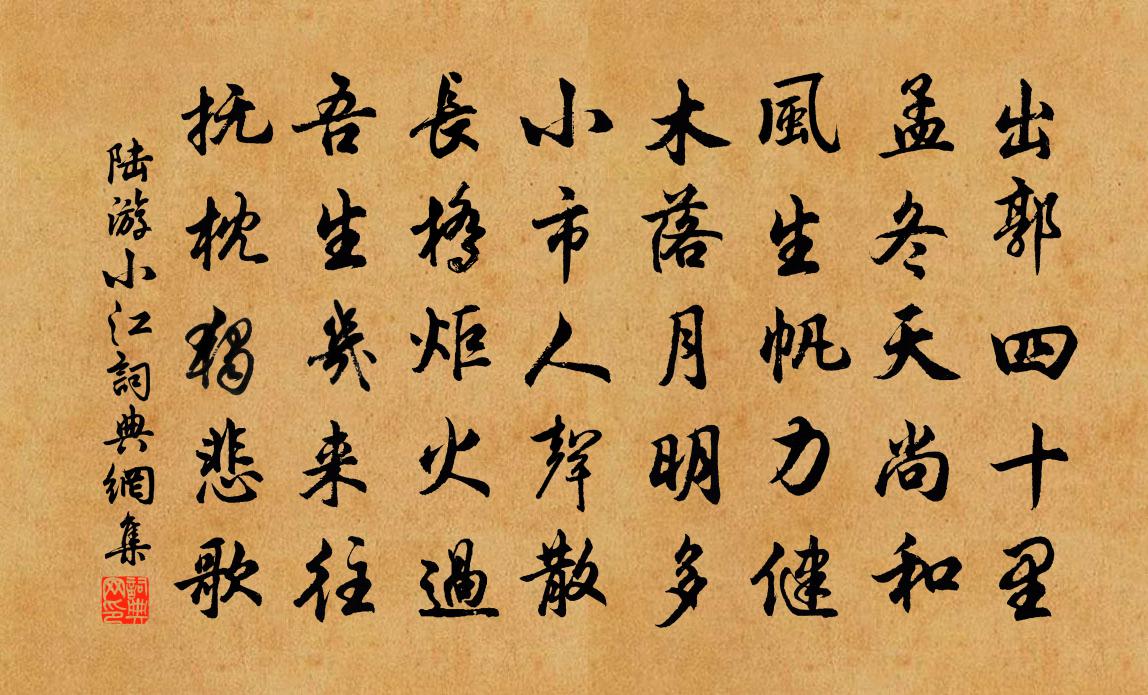 出郭四十里
孟冬天尚和
風生帆力健
木落月明多
小市人聲散
長橋炬火過
吾生幾来往
抚枕獨悲歌
陆游小江詞典網集
詞典网印